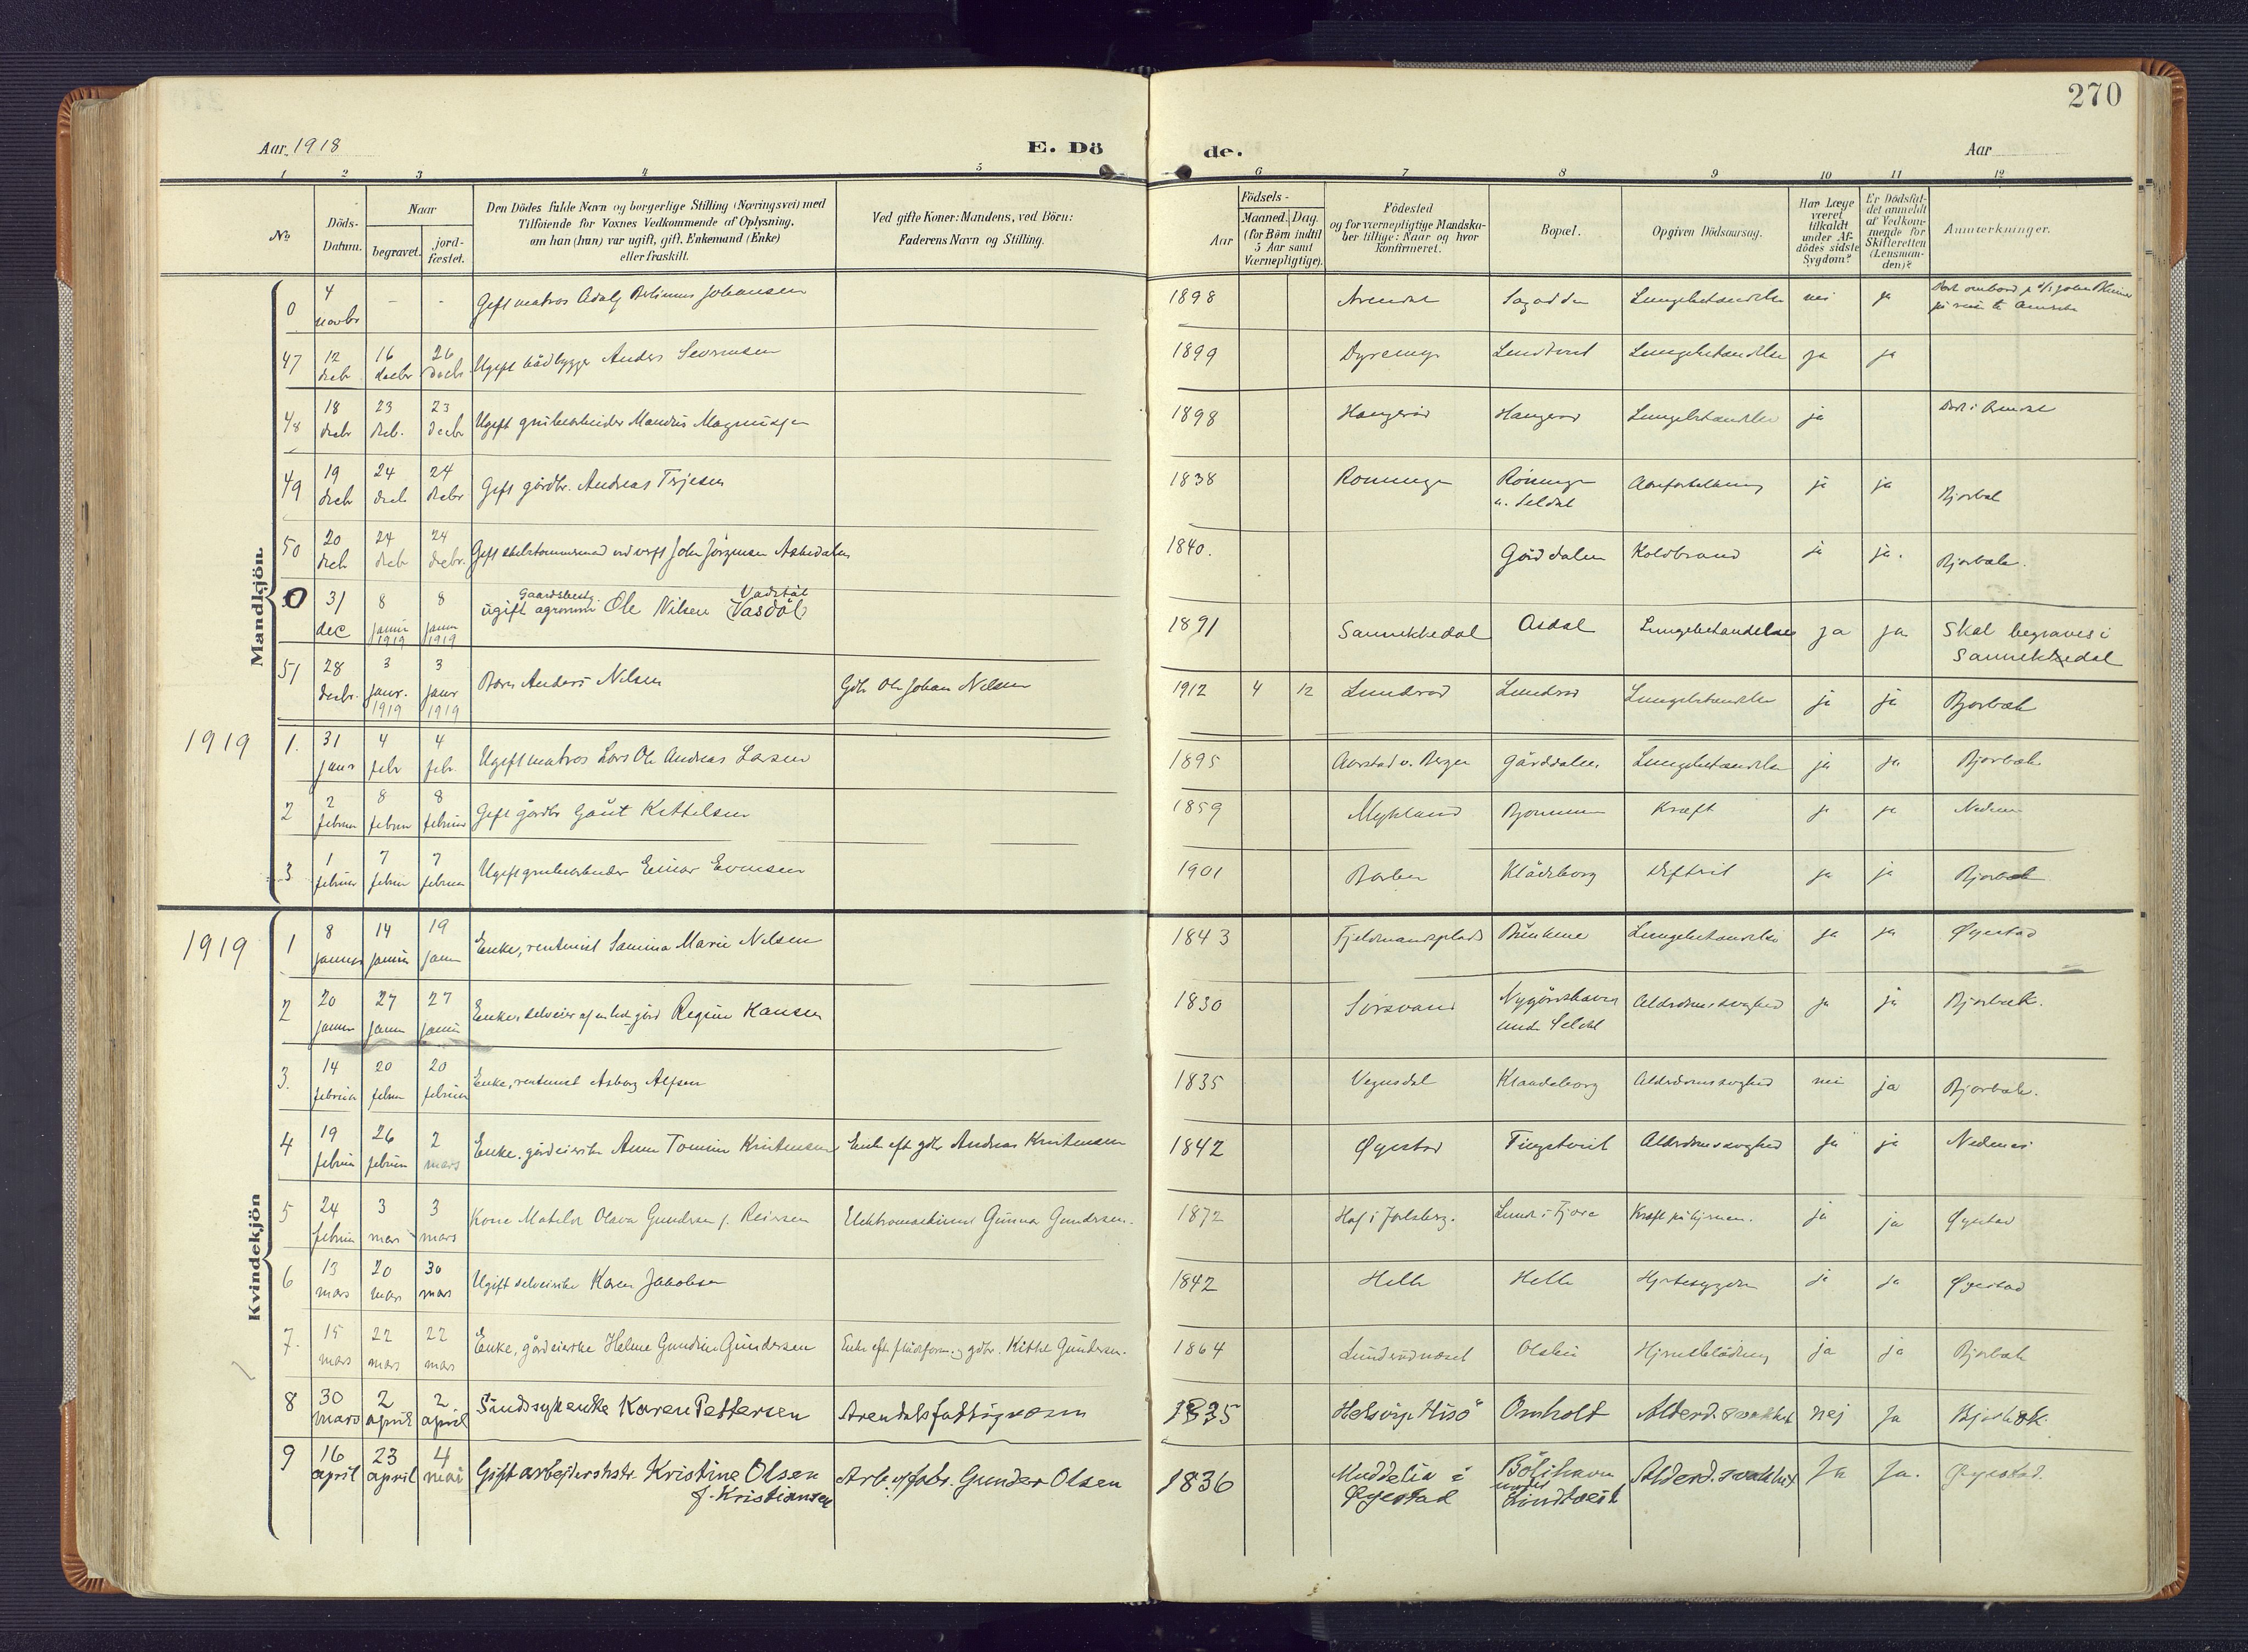 270
Aar 1918
E. Dö
de.
Aar
1 2 3 4 5 6 7 8 9 10 11 12
No
Döds-
Datum.
Naar
begravet.
jord-
fæstet.
Den Dödes fulde Navn og borgerlige Stilling (Næringsvei) med
Tilföiende for Voxnes Vedkommende af Oplysning,
om han (hun) var ugift, gift, Enkemand (Enke)
eller fraskilt.
Ved gifte Koner: Mandens, ved Börn:
Faderens Navn og Stilling.
Födsels-
Aar
Maaned. Dag.
(for Börn indtil
5 Aar samt
Værnepligtige).
Födested
og for værnepligtige Mandska-
ber tillige: Naar og hvor
konfirmeret.
Bopæl.
Opgiven Dödsaarsag.
Har Læge
været
tilkaldt
under Af-
dödes sidste
Sygdom?
Er Dödsfal-
det anmeldt
af Vedkom-
mende for
Skifteretten
(Lensman-
den)?
Anmærkninger.
Mandkjön
0 4 novbr - - Gift matros Adolf Johansen 1898 Arendal Lungebetændelse nei ja
47 12 decbr 16 decbr 26 decbr Ugift bådbygger Anders Severinsen 1899 Lindtveit Lungebetændelse ja ja
48 18 decbr 23 decb. 23 decbr Ugift grubearbeider Mandius Magnussen 1898 Haugerød Haugerød Lungebetændelse ja Død i Arendal
49 19 decbr 24 decb 24 decbr Gift gårdbr. Andreas Terjesen 1838 Rønninge Rønninge u. Seldal ja ja Bjorbæk
50 20 decb 24 decb 24 decbr. Gift John Jörgensen Askedalen 1840. Gårddalen Koldbrand ja ja. Bjorbæk.
0 31 dec 8 januar 1919 8 januar 1919 ugift Gaardsbest. agronom Ole Nilsen Vadstöl (Vasdöl) 1891 Sannekkedal Asdal Lungebetændelse ja ja Skal begraves i
Sannekkedal
51 28 decbr. 3 janr. 1919 3 janr 1919 Barn Anders Nilsen Gdb. Ole Johan Nilsen 1912 4 12 Lunderød Lunderød Lungebetændelse ja ja Bjorbæk
1919
1. 31 janr 4 febr 4 febr. Ugift matros Lars Ole Andreas Larsen 1895 Aarstad v. Bergen Gårddalen Lungebetændelse ja ja Bjorbæk
2 2 februar 8 februar 8 februar Gift gårdbr Gaut Kittelsen 1859 Mykland Kræft ja ja Nedenes
3 1 februar 7 februar 7 februar Ugift grubearbeider Einar Evensen 1901 Klådeborg Difterit ja ja Bjorbæk
Kvindekjön
1919
1 8 januar 14 januar 19 januar Enke, rentenist Samina Marie Nilsen 1843 Fjeldmandsplads Lungebetændelse ja ja Øyestad
2 20 januar 27 januar 27 januar Enke, selveier af en lott gård Regine Hansen 1830 Sørsvand Nygårdshaven
under Seldal Alderdomssvaghed ja ja Bjorbæk.
3. 14 februar 20 februar 20 februar Enke, rentenist Asborg Alfsen 1835 Vegusdal Klaudeborg Alderdomssvaghed nei ja Bjorbæk.
4 19 februar 26 februar 2 mars Enke, gårdeierske Anne Tomine Kristensen Enke eft. gdbr Andreas Kristensen 1842 Øyestad Tingstveit Alderdomssvaghed ja ja Nedenes
5 24 februar 3 mars 3 mars Kone Matilde Olava Gundersen f. Reiersen Elektromaskinist Gunnar Gundersen. 1872 Hof i Jarlsberg. Lund i Fjære Kræft på hjernen. ja ja Øyestad
6 13 mars 20 mars 30 mars Ugift selveierske Karen Jakobsen 1842 Helle Helle Hjertesygdom ja ja Øyestad
7. 15 mars 22 mars 22 mars Enke, gårdeierske Helene Gundersen Enke eft. flådform. og gdbr. Kittel Gundersen. 1864 Lunderødnæset Olsbu Hjerneblødning ja ja Bjorbæk
8 30 mars 2 april 2 april Sindssyk enke Karen Pettersen Arendals fattigvæsen 1835 Hisö Omholt Alderd. svakhet nej Ja Bjorbæk.
9 16 april 23 april 4 mai Gift arbejderhstr. Kristine Olsen
f. Kristiansen Arb. og Gdbr. Gunder Olsen 1836 Muddelia i
Øyestad Bölihavn
under
Lindtveit Alderd. svakhet Ja Ja. Øyestad.